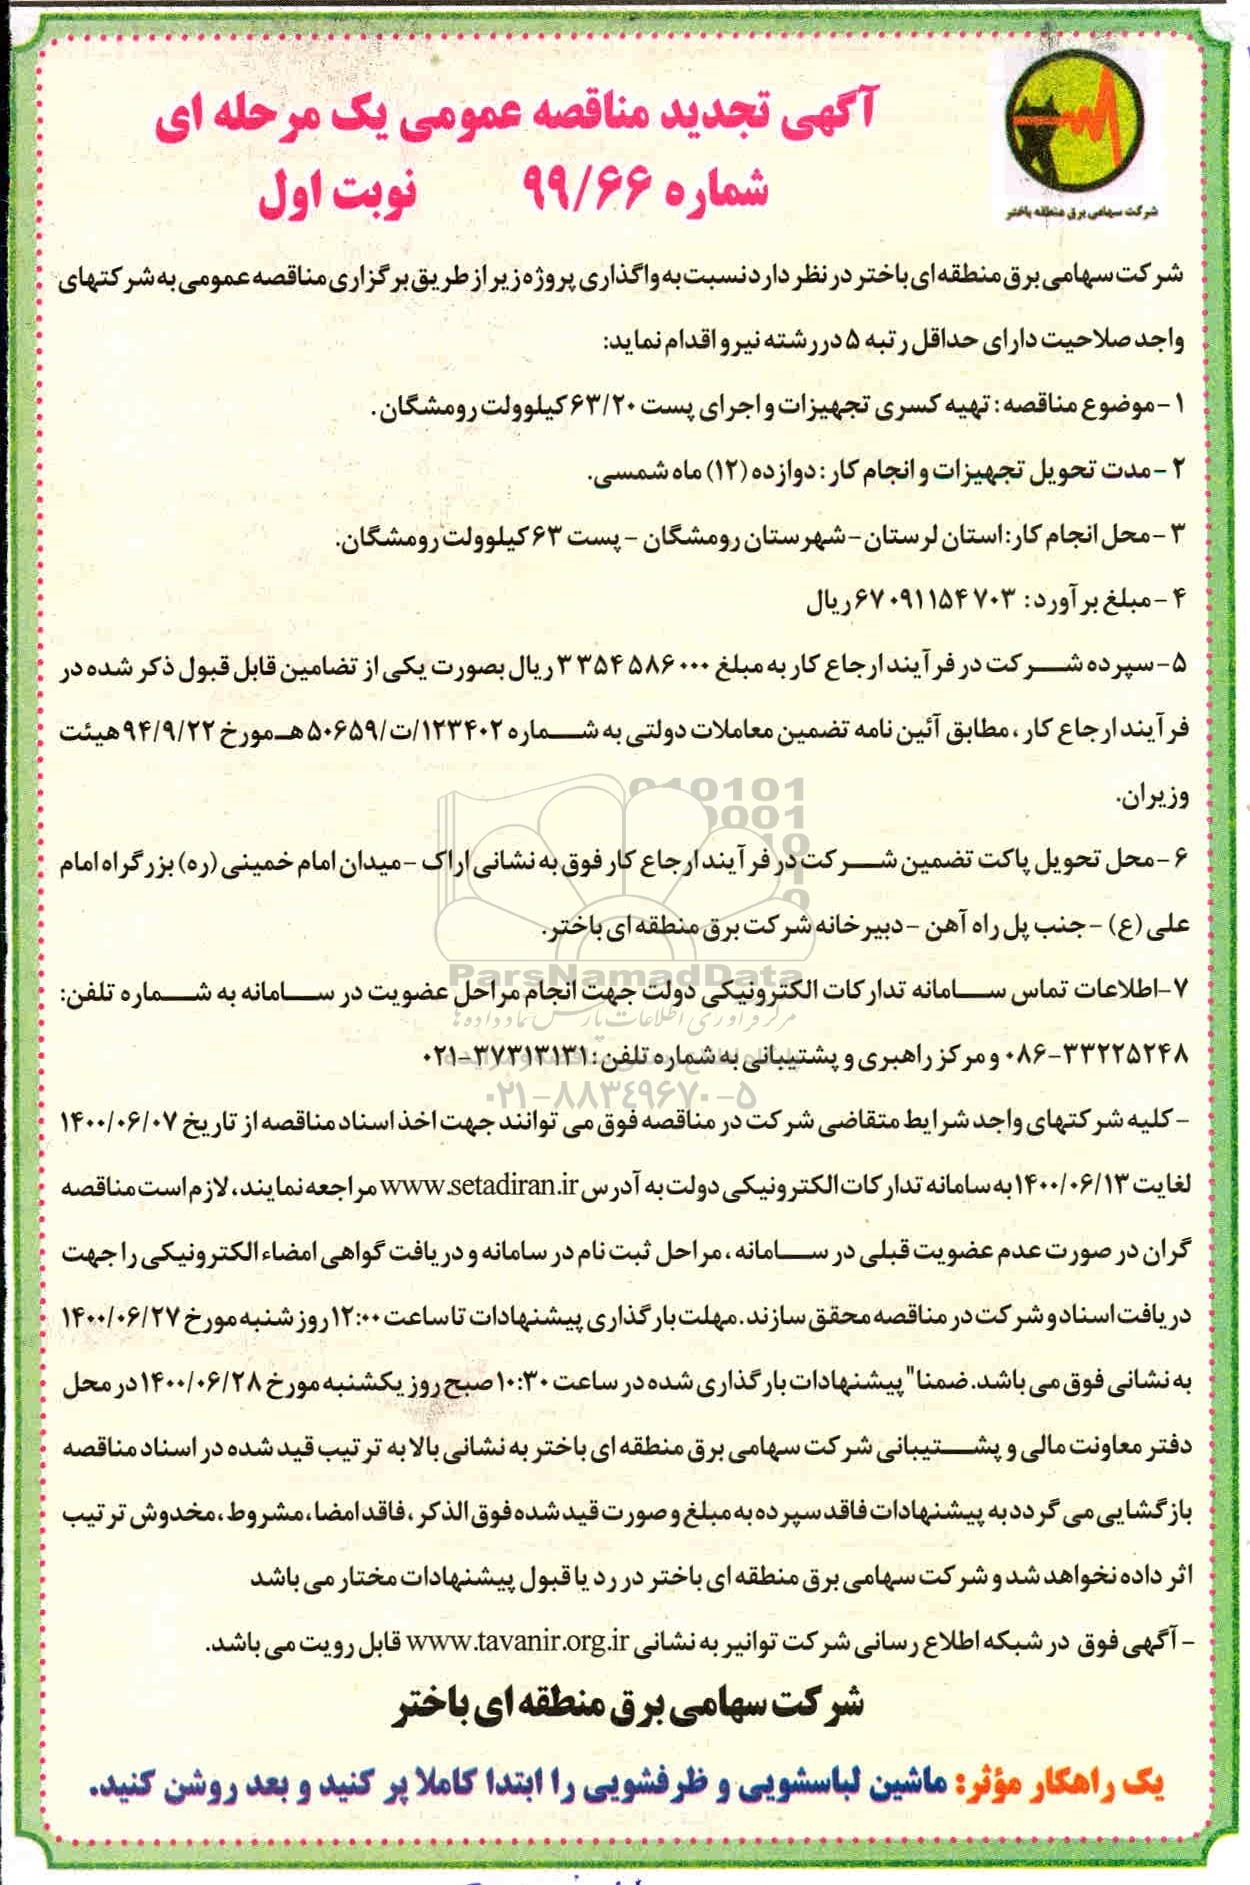 آگهی تجدید مناقصه عمومی یک مرحله ای
شماره ۹۹/۶۶ نوبت اول
شرکت سهامی برق منطقه باختر
شرکت سهامی برق منطقه ای باختر در نظر دارد نسبت به واگذاری پروژه زیر از طریق برگزاری مناقصه عمومی به شرکتهای
واجد صلاحیت دارای حداقل رتبه ۵ در رشته نیرو اقدام نماید:
۱-موضوع مناقصه: تهیه کسری تجهیزات و اجرای پست ۶۳/۲۰ کیلوولت رومشگان.
۲-مدت تحویل تجهیزات و انجام کار: دوازده (۱۲) ماه شمسی.
۳-محل انجام کار: استان لرستان-شهرستان رومشگان - پست ۶۳ کیلوولت رومشگان.
۴-مبلغ برآورد: ۶۷۰۹۱۱۵۴۷۰۳ ریال
۵-سپرده شرکت در فرآیند ارجاع کار به مبلغ ۳۳۵۴۵۸۶۰۰۰ ریال بصورت یکی از تضامین قابل قبول ذکر شده در
فرآیند ارجاع کار، مطابق آئین نامه تضمین معاملات دولتی به شماره ۱۲۳۴۰۲/ت/۵۰۶۵۹هـ مورخ ۹۴/۹/۲۲ هیئت
وزیران.
۶-محل تحویل پاکت تضمین شرکت در فرآیند ارجاع کار فوق به نشانی اراک -میدان امام خمینی (ره) بزرگراه امام
علی (ع) -جنب پل راه آهن -دبیرخانه شرکت برق منطقه ای باختر.
ParsNamadData
۷-اطلاعات تماس سامانه تدارکات الکترونیکی دولت جهت انجام مراحل عضویت در سامانه به شماره تلفن:
مرکز فرآوری اطلاعات پارس نماد داده ها
۰۸۶-۳۳۲۲۵۲۴۸ و مرکز راهبری و پشتیبانی به شماره تلفن: ۰۲۱-۳۷۳۱۳۱۳۱
۰۲۱-۸۸۳۴۹۶۷۰-۵
-کلیه شرکتهای واجد شرایط متقاضی شرکت در مناقصه فوق می توانند جهت اخذ اسناد مناقصه از تاریخ ۱۴۰۰/۰۶/۰۷
لغایت ۱۴۰۰/۰۶/۱۳ به سامانه تدارکات الکترونیکی دولت به آدرس www.setadiran.ir مراجعه نمایند، لازم است مناقصه
گران در صورت عدم عضویت قبلی در سامانه، مراحل ثبت نام در سامانه و دریافت گواهی امضاء الکترونیکی را جهت
دریافت اسناد و شرکت در مناقصه محقق سازند. مهلت بارگذاری پیشنهادات تا ساعت ۱۲:۰۰ روز شنبه مورخ ۱۴۰۰/۰۶/۲۷
به نشانی فوق می باشد. ضمنا" پیشنهادات بارگذاری شده در ساعت ۱۰:۳۰ صبح روز یکشنبه مورخ ۱۴۰۰/۰۶/۲۸ در محل
دفتر معاونت مالی و پشتیبانی شرکت سهامی برق منطقه ای باختر به نشانی بالا به ترتیب قید شده در اسناد مناقصه
بازگشایی می گردد به پیشنهادات فاقد سپرده به مبلغ و صورت قید شده فوق الذکر، فاقد امضا، مشروط، مخدوش ترتیب
اثر داده نخواهد شد و شرکت سهامی برق منطقه ای باختر در رد یا قبول پیشنهادات مختار می باشد
- آگهی فوق در شبکه اطلاع رسانی شرکت توانیر به نشانی www.tavanir.org.ir قابل رویت می باشد.
شرکت سهامی برق منطقه ای باختر
یک راهکار مؤثر: ماشین لباسشویی و ظرفشویی را ابتدا کاملا پر کنید و بعد روشن کنید.